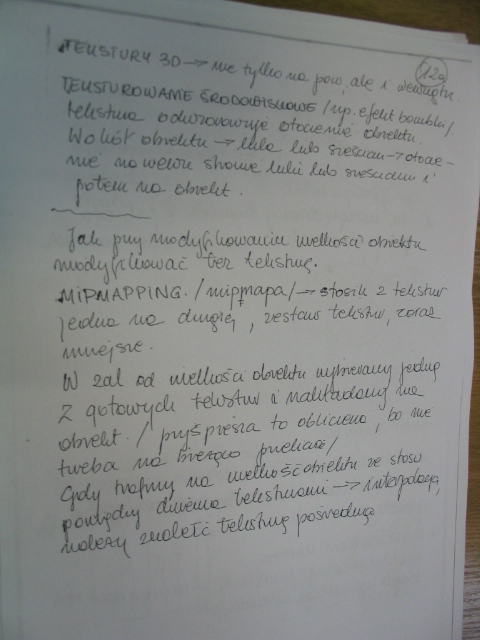 12a
TEKSTURY 3D → nie tylko na pow, ale i wewnątrz.
TEKSTUROWANIE ŚRODOWISKOWE /np. efekt bombki/
tekstura odwzorowuje otoczenie obiektu.
Wokół obiektu → kula lub sześcian → otocze-
nie na wewn stronę kuli lub sześcianu i
potem na obiekt.
Jak przy modyfikowaniu wielkości obiektu
modyfikować też teksturę.
MIPMAPPING. /mipmapa/ → stosik z tekstur
jedna na drugiej, zestaw tekstur, coraz
mniejsze.
W zal od wielkości obiektu wybieramy jedną
z gotowych tekstur i nakładamy na
obiekt. /przyspiesza to obliczenia, bo nie
trzeba na bieżąco przeliczać/
Gdy trafimy na wielkość obiektu ze stosu
pomiędzy dwiema teksturami → interpolacja,
należy znaleźć teksturę pośrednią